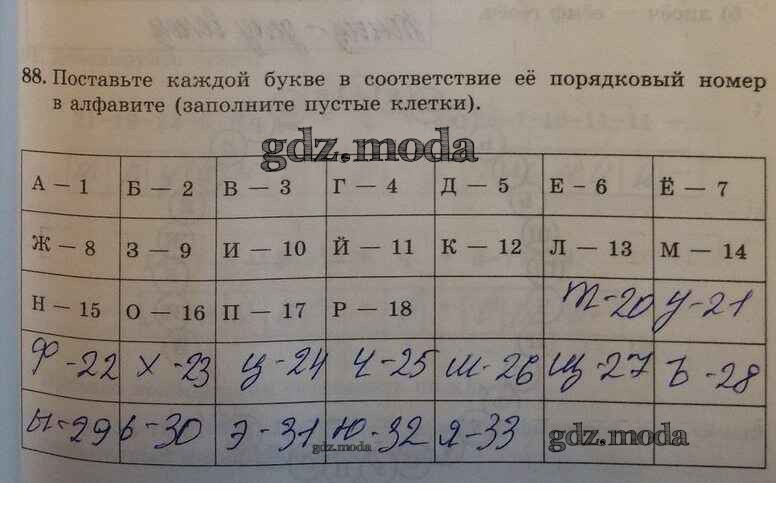 88. Поставьте каждой букве в соответствие её порядковый номер
в алфавите (заполните пустые клетки).
gdz.moda
А — 1 Б — 2 В — 3 Г — 4 Д — 5 Е - 6 Ё — 7
Ж — 8 З — 9 И — 10 Й — 11 К — 12 Л — 13 М — 14
Н — 15 О — 16 П — 17 Р — 18 Т-20 У-21
Ф-22 Х-23 Ц-24 Ч-25 Ш-26 Щ-27 Ъ-28
Ы-29 Ь-30 Э-31 Ю-32 Я-33
gdz.moda gdz.moda